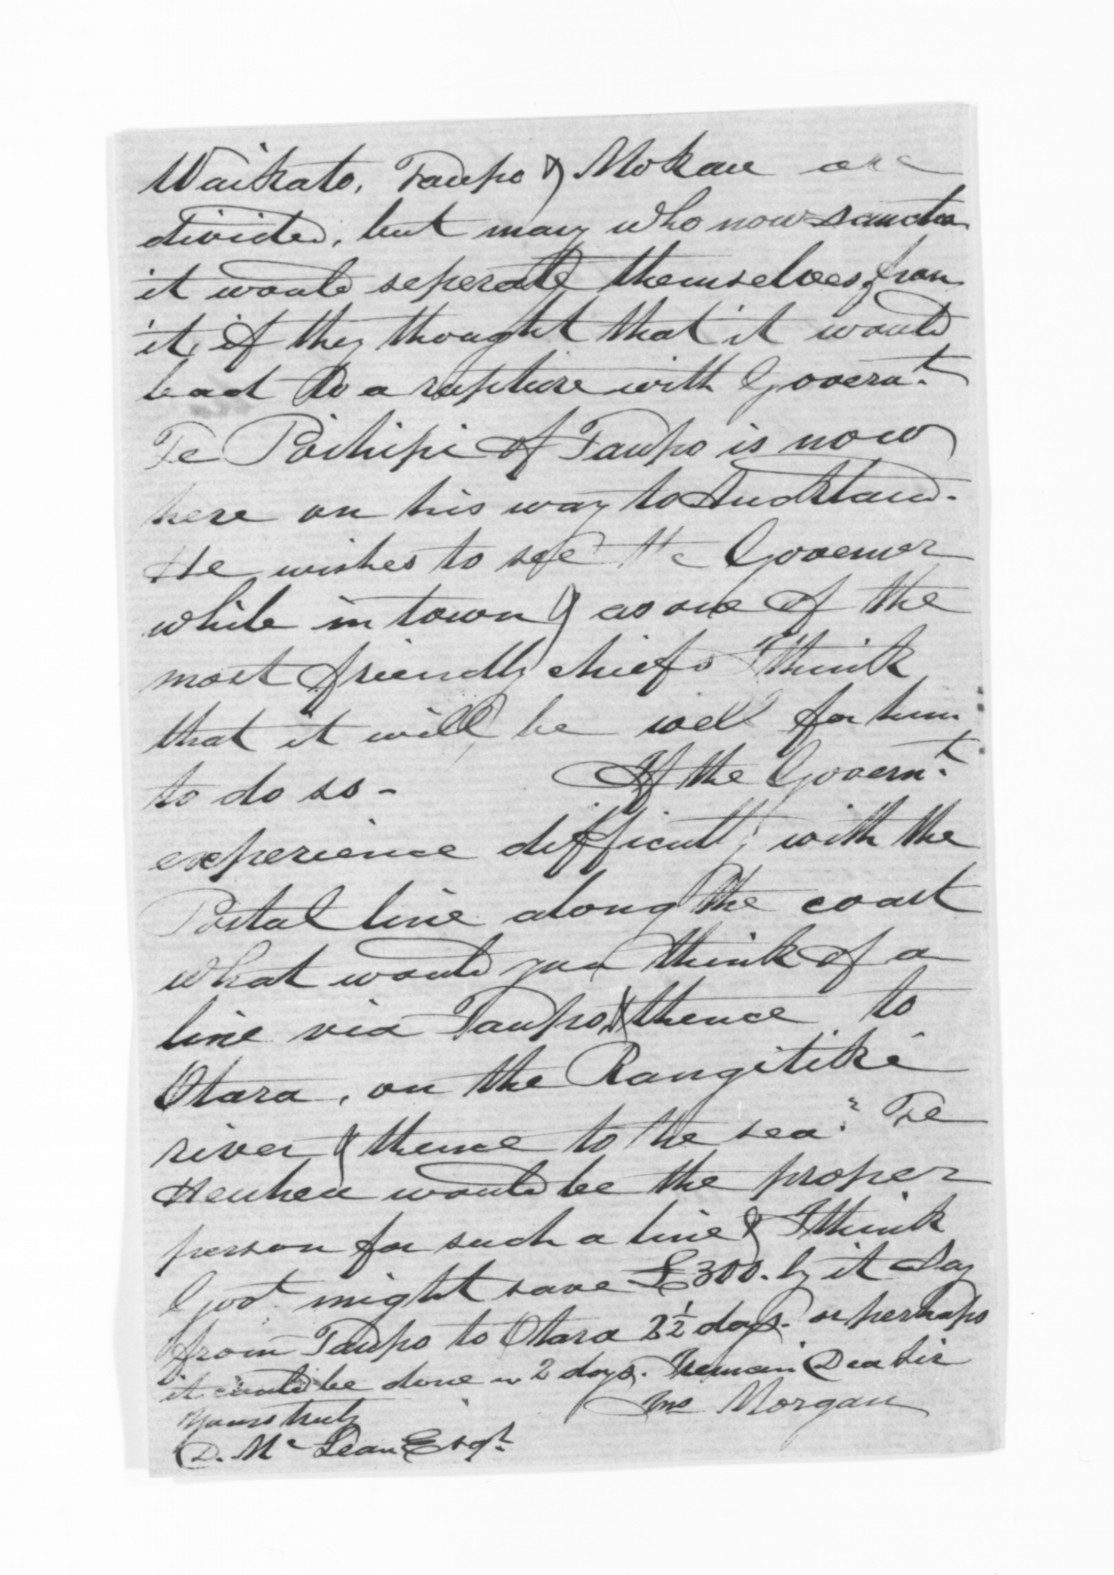 Waikato, Taupo & Mokau are
divided, but many who now sanction
it would seperate themselves from
it, if they thought that it would
lead to a rupture with Governt.
Te Poihipi of Taupo is now
here on his way to Auckland.
He wishes to see the Governor
while in town & as one of the
most friendly chiefs I think
that it will be well for him
to do so - If the Governt.
experience difficulty with the
Postal line along the coast
what would you think of a
line via Taupo & thence to
Otara, on the Rangitiki
river & thence to the sea? Te
Heuheu would be the proper
person for such a line & I think
Govt. might save £300. by it Say
from Taupo to Otara 2½ days. or perhaps
it could be done in 2 days. I remain Dea Sir
Yours truly Jno Morgan
D. McLean Esqr.